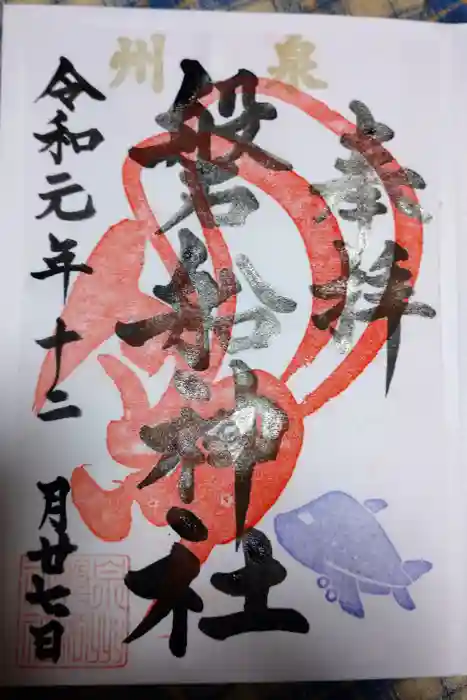 泉州
奉拝
磐船神社
令和元年十二月廿七日